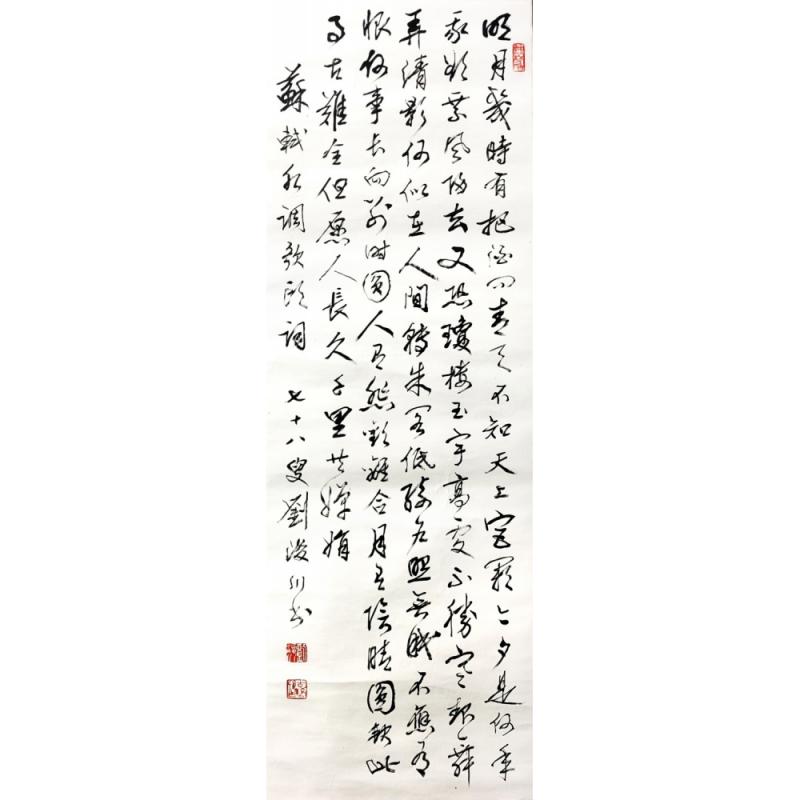 明月幾時有把酒问青天不知天上宮闕今夕是何年
我欲乘風歸去又恐瓊樓玉宇高處不勝寒起舞
弄清影何似在人間轉朱閣低綺户照無眠不應有
恨何事長向别時圓人有悲歡離合月有陰晴圓缺此
事古難全但愿人長久千里共嬋娟
蘇軾水調歌頭詞 七十八叟劉浚川书